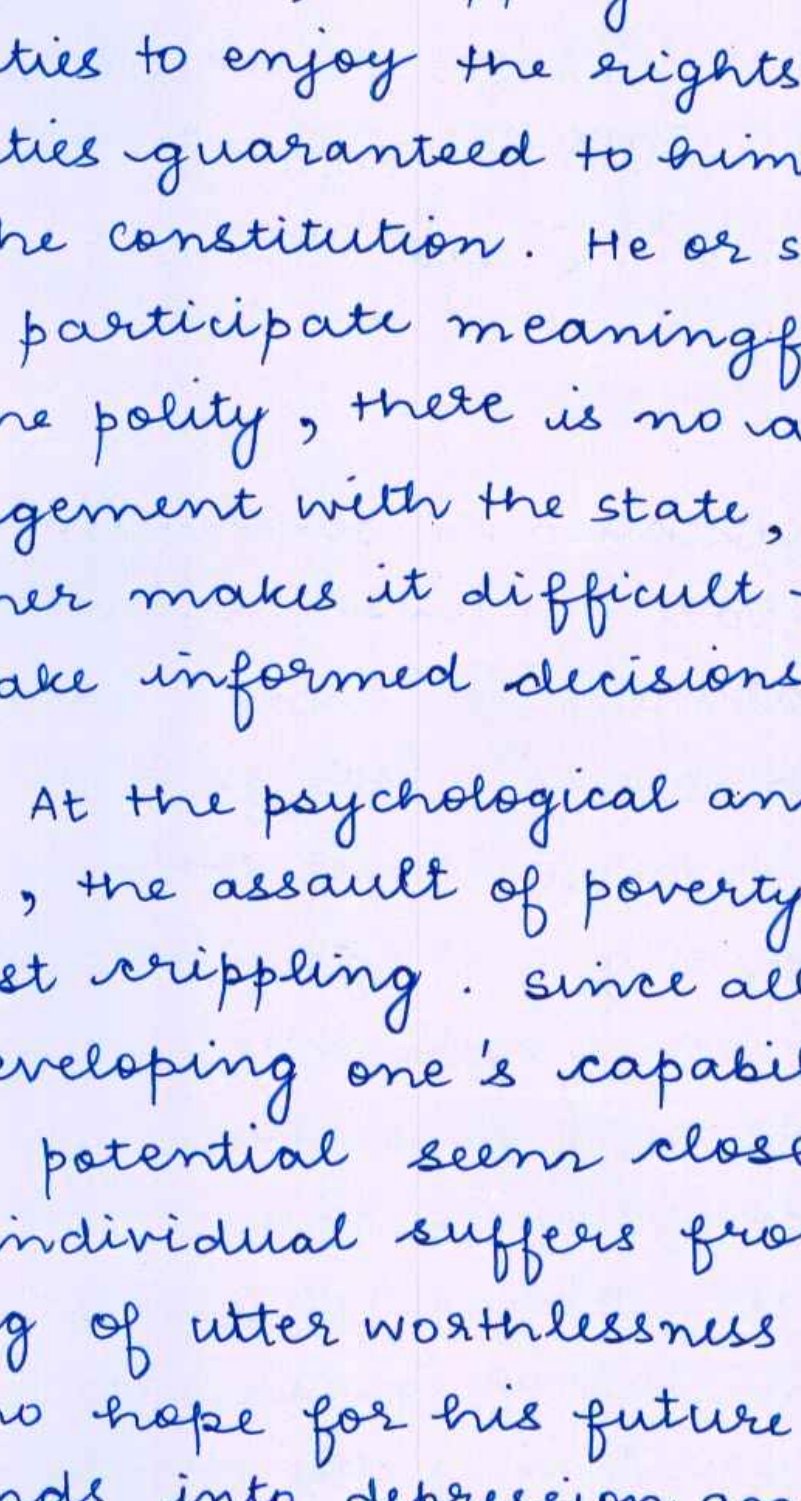 ties to enjoy the rights
ties guaranteed to him
he constitution. He or s
participate meaningf
ne polity, there is no a
gement with the state,
her makes it difficult
ake informed decisions
At the psychological an
, the assault of poverty
st crippling. Since all
eveloping one's capabil
potential seem close
individual suffers fro
g of utter worthlessness
no hope for his future
nds into depression